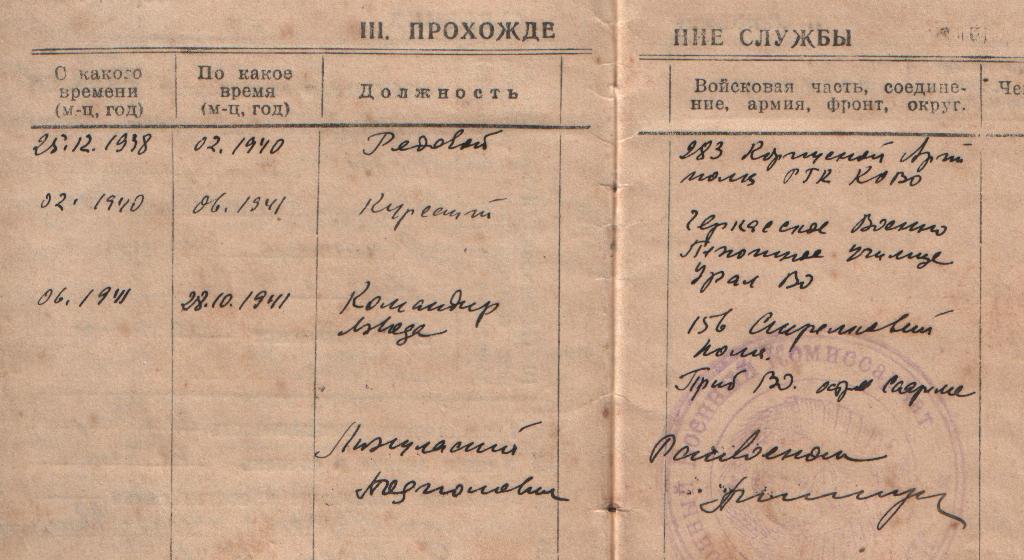 III. ПРОХОЖДЕ
НИЕ СЛУЖБЫ
С какого времени (м-ц, год)
По какое время (м-ц, год)
Должность
Войсковая часть, соедине-
ние, армия, фронт, округ.
25.12.1938 02.1940 Редовой 283
полк РГК КОВО
02. 1940 06.1941 Курсант Черкасское Военно
Пехотное училище
Урал ВО
06.1941 28.10.1941 Командир
взвода
156 Стрелковий
полк.
Приб ВО.
Райвоенком
Подполковник